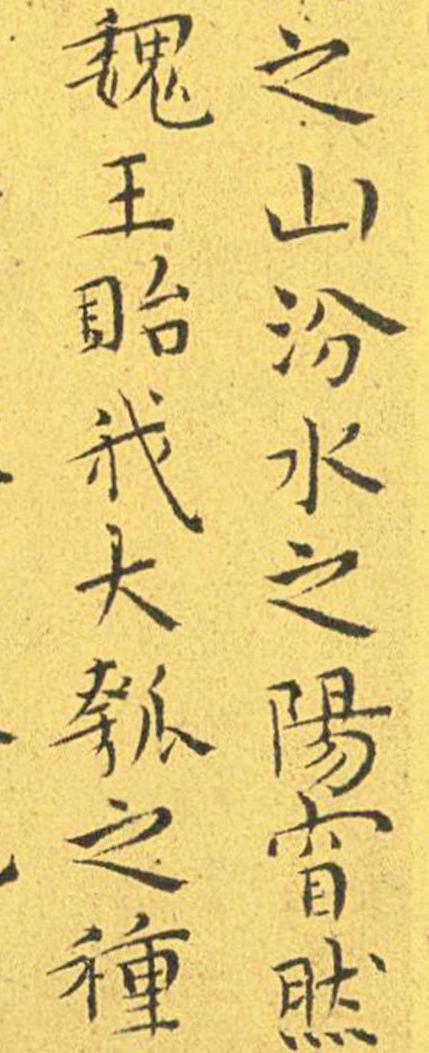 之山汾水之陽窅然
魏王貽我大瓠之種